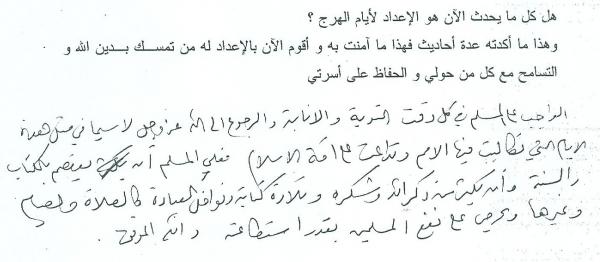 هل كل ما يحدث الآن هو الإعداد لأيام الهرج ؟
وهذا ما أكدته عدة أحاديث فهذا ما آمنت به و أقوم الآن بالإعداد له من تمسك بدين الله و
التسامح مع كل من حولي و الحفاظ على أسرتي
الواجب على المسلم في كل وقت التوبة والإنابة والرجوع إلى الله عز وجل لا سيما في مثل هذه
الأيام التي تكالبت فيها الأمم وتداعت على أمة الإسلام فعلى المسلم أن يعتصم بالكتاب
والسنة وأن يكثر من ذكر الله وشكره وتلاوة كتابه ونوافل العبادة كالصلاة والصيام
وغيرها ويحرص على نفع المسلمين بقدر استطاعته والله الموفق .